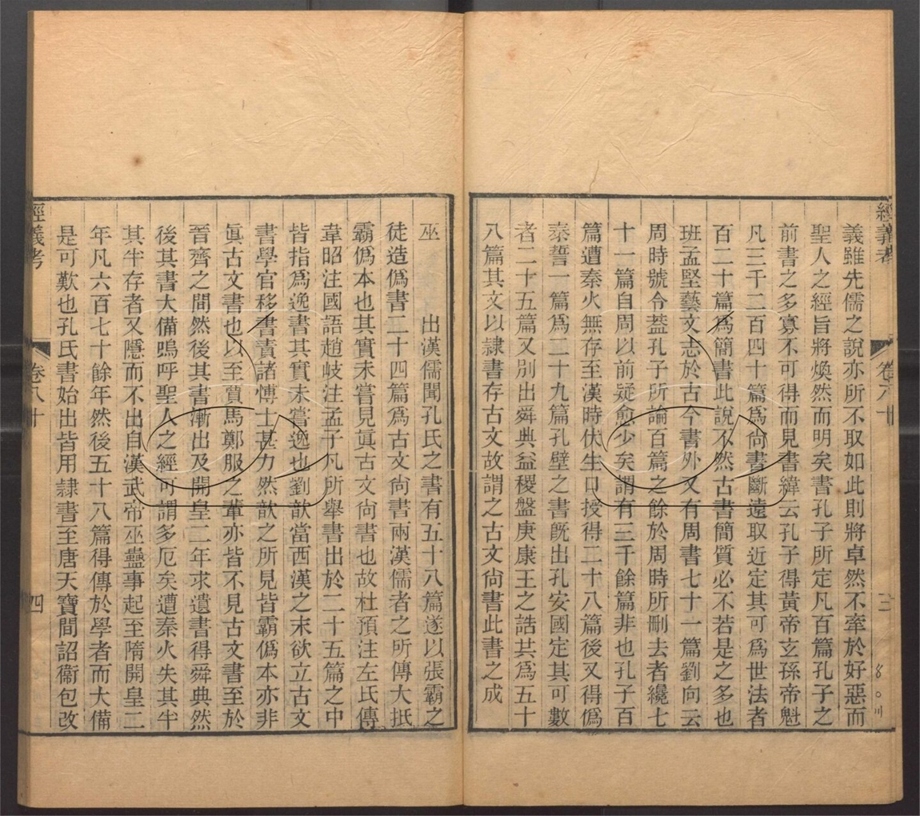 經義考
卷八十
三
義雖先儒之說亦所不取如此則將卓然不牽於好惡而
聖人之經旨將煥然而明矣書孔子所定凡百篇孔子之
前書之多寡不可得而見書緯云孔子得黃帝玄孫帝魁
凡三千二百四十篇為尙書斷遠取近定其可為世法者
百二十篇為簡書此說不然古書簡質必不若是之多也
班孟堅藝文志於古今書外又有周書七十一篇劉向云
周時號令蓋孔子所論百篇之餘於周時所刪去者纔七
十一篇自周以前疑愈少矣謂有三千餘篇非也孔子百
篇遭秦火無存至漢時伏生口授得二十八篇後又得僞
泰誓一篇為二十九篇孔壁之書旣出孔安國定其可數
者二十五篇又別出舜典益稷盤庚康王之誥共為五十
八篇其文以隷書存古文故謂之古文尙書此書之成
巫 出漢儒聞孔氏之書有五十八篇遂以張霸之
徒造僞書二十四篇為古文尙書兩漢儒者之所傳大抵
霸僞本也其實未嘗見眞古文尙書也故杜預注左氏傳
韋昭注國語趙岐注孟子凡所舉書出於二十五篇之中
皆指為逸書其實未嘗逸也劉歆當西漢之末欲立古文
書學官移書責諸博士甚力然歆之所見皆霸僞本亦非
眞古文書也以至賈馬鄭服之輩亦皆不見古文書至於
晉齊之間然後其書漸出及開皇二年求遺書得舜典然
後其書大備嗚呼聖人之經可謂多厄矣遭秦火失其半
其半存者又隱而不出自漢武帝巫蠱事起至隋開皇二
年凡六百七十餘年然後五十八篇得傳於學者而大備
是可歎也孔氏書始出皆用隷書至唐天寶間詔衞包改
經義考
卷八十
四